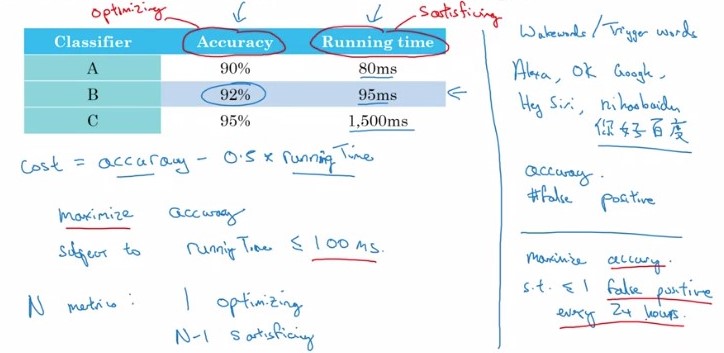 optimizing
satisficing
Classifier Accuracy Running time
A 90% 80ms
B 92% 95ms
C 95% 1,500ms
cost = accuracy - 0.5 x running Time
maximize accuracy
subject to running Time ≤ 100 ms.
N metrics: 1 optimizing
N-1 satisficing
Wakewords / Trigger words
Alexa, OK Google,
Hey Siri, nihaobaidu
你好百度
accuracy.
#false positive
maximize accuracy.
s.t. ≤ 1 false positive
every 24 hours.